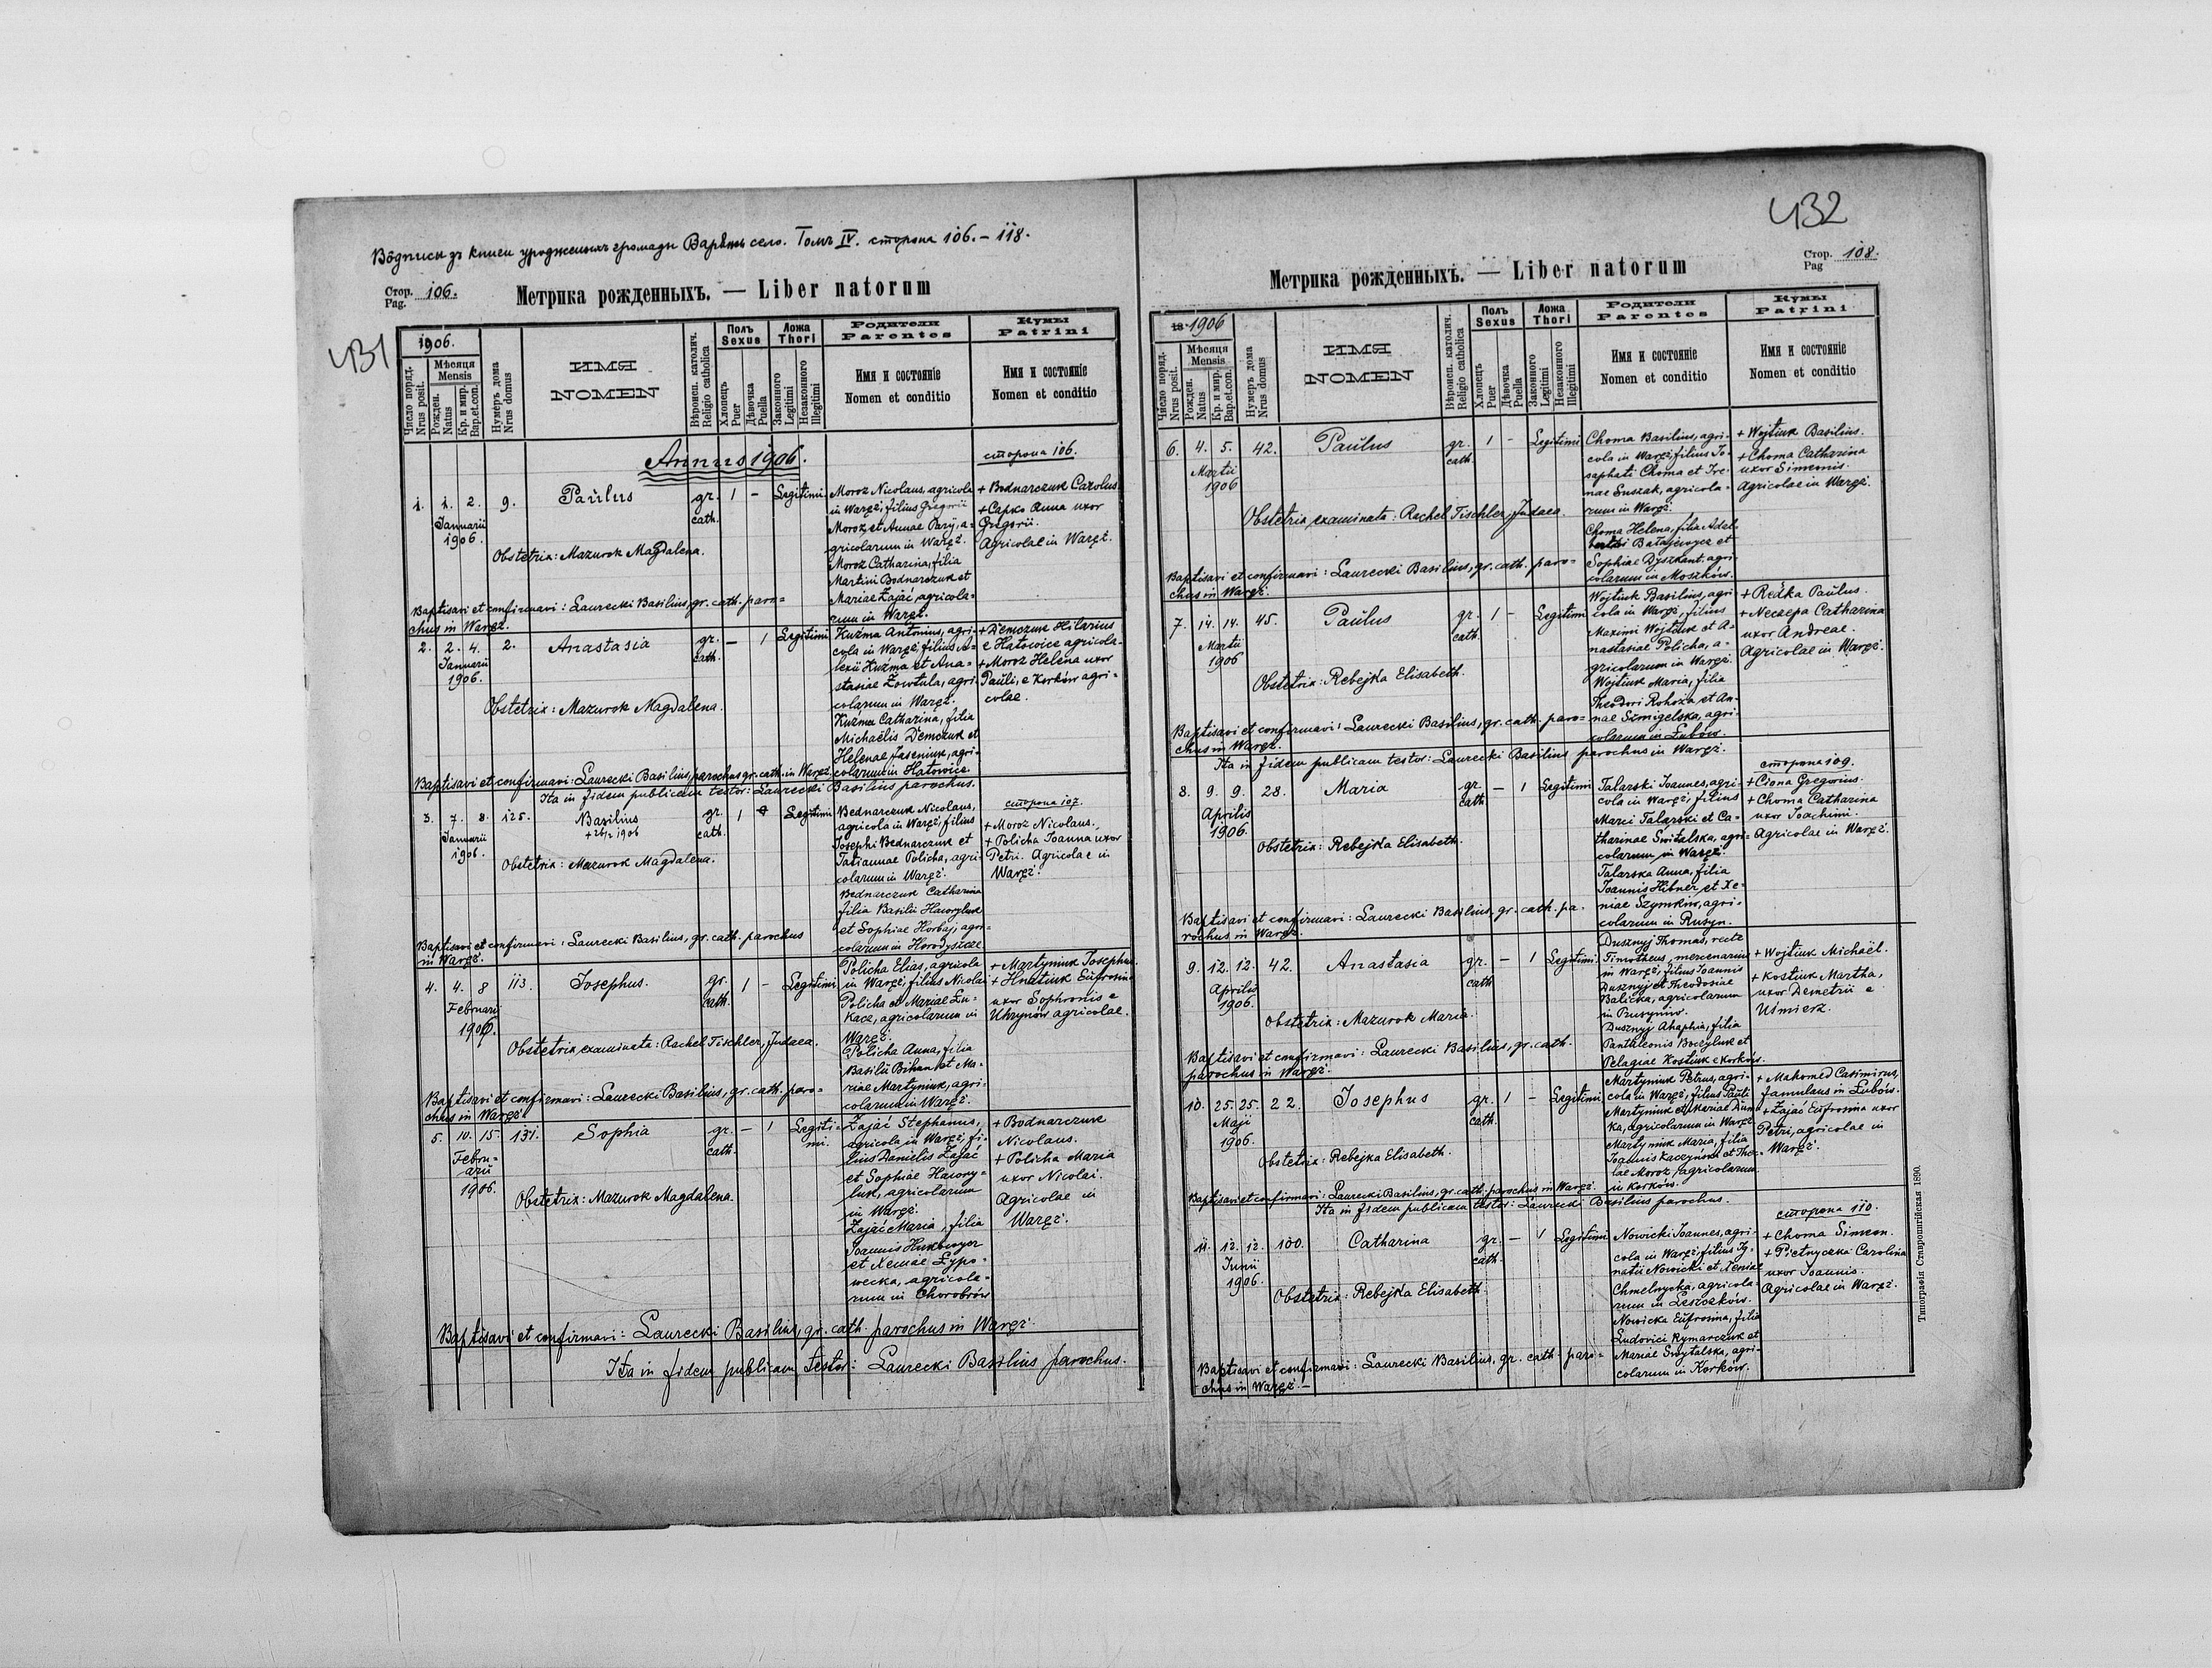 Вôдписи зъ книги уродженыхъ громады Варяжъ село. Томъ IV. сторона 106.–118.
431
Стор. Pag. 106.
Метрика рожденныхъ. — Liber natorum
1906.
Число поряд. Nrus posit.
Мѣсяця Mensis
Рожден. Natus
Кр. и мир. Bap.et.con.
Нумеръ дома Nrus domus
ИМЯ
NOMEN
Вѣроисп. католич. Religio catholica
Полъ Sexus
Хлопець Puer
Дѣвочка Puella
Ложа Thori
Законного Legitimi
Незаконного Illegitimi
Родители Parentes
Имя и состоянiе
Nomen et conditio
Кумы Patrini
Имя и состоянiе
Nomen et conditio
Annus 1906.
сторона 106.
1. 1. 2. Januarii 1906. 9. Paŭlus gr. cath. 1 – Legitimi
Moroz Nicolaus, agricola
in Waręż, filius Gregorii
Moroz et Annae Pary, a-
gricolarum in Waręż.
Moroz Catharina, filia
Martini Bodnarczuk et
Mariae Zając, agricola-
rum in Waręż.
+ Bednarczuk Carolus
+ Capko Anna uxor
Gregorii.
Agricolae in Waręż.
Obstetrix: Mazurok Magdalena.
Baptisavi et confirmavi: Laurecki Basilius, gr. cath. paro-
chus in Waręż.
2. 2. 4. Januarii 1906. 2. Anastasia gr. cath. – 1 Legitimi
Kuźma Antonius, agri-
cola in Waręż, filius A-
lexii Kuźma et Ana-
stasiae Żowtula, agri-
colarum in Waręż.
Kuźma Catharina, filia
Michaëlis Demczuk et
Helenae Jaseniuk, agri-
colarum in Hatowice
+ Demczuk Hilarius
e Hatowice agricola-
+ Moroz Helena uxor
Paŭli, e Korków agri-
colae.
Obstetrix: Mazurok Magdalena.
Baptisavi et confirmavi: Laurecki Basilius, parochus gr. cath. in Waręż.
Ita in fidem publicam testor: Laurecki Basilius parochus.
сторона 107.
3. 7. 8. Januarii 1906. 125. Basilius gr. cath. 1 Legitimi
+ 26/2 1906
Bednarczuk Nicolaus,
agricola in Waręż, filius
Josephi Bednarczuk et
Tatiannae Policha, agri-
colarum in Waręż.
Bednarczuk Catharina
filia Basilii Hawryluk
et Sophiae Horbaj, agri-
colarum in Horodyszcze
+ Moroz Nicolaus.
+ Policha Joanna uxor
Petri. Agricolae in
Waręż.
Obstetrix: Mazurok Magdalena.
Baptisavi et confirmavi: Laurecki Basilius, gr. cath. parochus
in Waręż.
4. 4. 8 Februarii 1906. 113. Josephus. gr. cath. 1 – Legitimi
Policha Elias, agricola
in Waręż, filius Nicolai
Policha et Mariae Lu-
kacz, agricolarum in
Waręż.
Policha Anna, filia
Basilii Bihun et Ma-
riae Martyniuk, agri-
colarum in Waręż.
+ Martyniuk Josephus
+ Hnatiuk Eŭfrosina
uxor Sophronis e
Uhrynów agricolae.
Obstetrix examinata: Rachel Tischler, Judaea.
Baptisavi et confirmavi: Laurecki Basilius, gr. cath. paro-
chus in Waręż.
5. 10. 15. Febru-arii 1906. 131. Sophia gr. cath. – 1 Legiti-mi.
Zając Stephanus,
agricola in Waręż, fi-
lius Danielis Zając
et Sophiae Hawry-
luk, agricolarum
in Waręż.
Zając Maria, filia
Joannis Hukowycz
et Xeniae Lypo-
wecka, agricola-
rum in Chorobrów
+ Bodnarczuk
Nicolaus.
+ Policha Maria
uxor Nicolai.
Agricolae in
Waręż.
Obstetrix: Mazurok Magdalena.
Baptisavi et confirmavi: Laurecki Basilius, gr. cath. parochus in Waręż.
Ita in fidem publicam testor: Laurecki Basilius parochus.
432
Стор. Pag 108.
Метрика рожденныхъ. — Liber natorum
18 1906
Число поряд. Nrus posit.
Мѣсяця Mensis
Рожден. Natus
Кр. и мир. Bap.et.con.
Нумеръ дома Nrus domus
ИМЯ
NOMEN
Вѣроисп. католич. Religio catholica
Полъ Sexus
Хлопець Puer
Дѣвочка Puella
Ложа Thori
Законного Legitimi
Незаконного Illegitimi
Родители Parentes
Имя и состоянiе
Nomen et conditio
Кумы Patrini
Имя и состоянiе
Nomen et conditio
6. 4. 5. Martii 1906 42. Paŭlus gr. cath. 1 – Legitimi
Choma Basilius, agri-
cola in Waręż, filius Jo-
saphati Choma et Ire-
nae Suszak, agricola-
rum in Waręż.
Choma Helena, filia Adal-
berti Batajewycz et
Sophiae Dyszkant agri-
colarum in Moszków.
+ Wojtiuk Basilius.
+ Choma Catharina
uxor Simeonis.
Agricolae in Waręż.
Obstetrix examinata: Rachel Tischler, Judaea.
Baptisavi et confirmavi: Laurecki Basilius, gr. cath. paro-
chus in Waręż.
7. 14. 14. Martii 1906 45. Paŭlus gr. cath. 1 – Legitimi
Wojtiuk Basilius, agri-
cola in Waręż, filius
Maximi Wojtiuk et A-
nastasiae Policha, a-
gricolarum in Waręż.
Wojtiuk Maria, filia
Theodori Rohoza et An-
nae Szmigelska, agri-
colarum in Łubów.
+ Redka Paŭlus.
+ Neczepa Catharina
uxor Andreae.
Agricolae in Waręż.
Obstetrix: Rebejka Elisabeth.
Baptisavi et confirmavi: Laurecki Basilius, gr. cath. paro-
chus in Waręż.
Ita in fidem publicam testor: Laurecki Basilius parochus in Waręż.
сторона 109.
8. 9. 9. Aprilis 1906. 28. Maria gr. cath. – 1 Legitimi
Talarski Joannes, agri-
cola in Waręż, filius
Marci Talarski et Ca-
tharinae Switalska, agri-
colarum in Waręż.
Talarska Anna, filia
Joannis Hibner et Xe-
niae Szymków, agri-
colarum in Rusyn.
+ Ciona Gregorius.
+ Choma Catharina
uxor Joachimi.
Agricolae in Waręż.
Obstetrix: Rebejka Elisabeth.
Baptisavi et confirmavi: Laurecki Basilius, gr. cath. pa-
rochus in Waręż.
9. 12. 12. Aprilis 1906. 42. Anastasia gr. cath. – 1 Legitimi.
Dusznyj Thomas, recte
Timotheus, mercenarius
in Waręż, filius Joannis
Dusznyj et Theodosiae
Balicka, agricolarum
in Prusynów.
Dusznyj Ahaphia, filia
Panthleonis Boczyluk et
Pelagiae Kostiuk e Korków.
+ Wojtiuk Michaël.
+ Kostiuk Martha,
uxor Demetrii e
Uśmierz.
Obstetrix: Mazurok Maria.
Baptisavi et confirmavi: Laurecki Basilius, gr. cath.
parochus in Waręż.
10. 25. 25. Maji 1906. 22. Josephus gr. cath. 1 – Legitimi
Martyniuk Petrus, agri-
cola in Waręż, filius Paŭli
Martyniuk et Mariae Dum-
ka, agricolarum in Waręż
Martyniuk Maria, filia
Joannis Kaczyński et The-
lae Moroz, agricolarum
in Korków.
+ Mahomed Casimirus,
famulus in Łubów.
+ Zając Eŭfrosina uxor
Petri, agricolae in
Waręż.
Obstetrix: Rebejka Elisabeth.
Baptisavi et confirmavi: Laurecki Basilius, gr. cath. parochus in Waręż.
Ita in fidem publicam testor: Laurecki Basilius parochus.
сторона 110.
11. 12. 12. Junii 1906. 100. Catharina gr. cath. – 1 Legitimi
Nowicki Joannes, agri-
cola in Waręż, filius Ig-
natii Nowicki et Xeniae
Chmelnycka, agricola-
rum in Leszczków.
Nowicka Eŭfrosina, filia
Ludovici Rymarczuk et
Mariae Swytalska, agri-
colarum in Korków.
+ Choma Simeon.
+ Pietnyczka Carolina
uxor Joannis.
Agricolae in Waręż.
Obstetrix: Rebejka Elisabeth.
Baptisavi et confirmavi: Laurecki Basilius, gr. cath. paro-
chus in Waręż.–
Типографiя Ставропигiйская 1890.